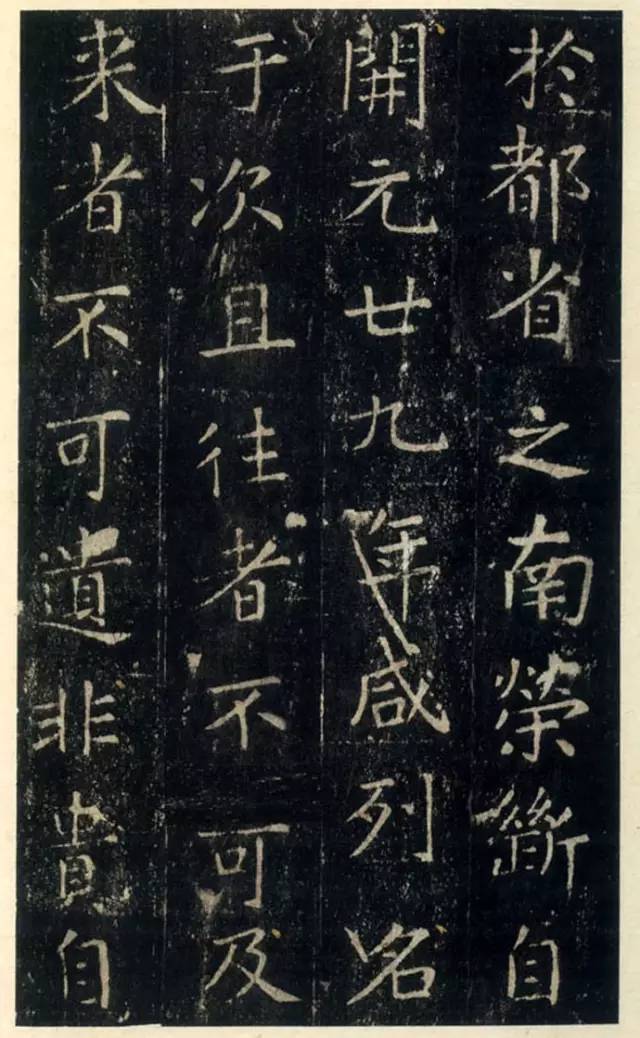 於都省之南荣斷自
開元廿九年咸列名
于次且往者不可及
来者不可遺非貴自